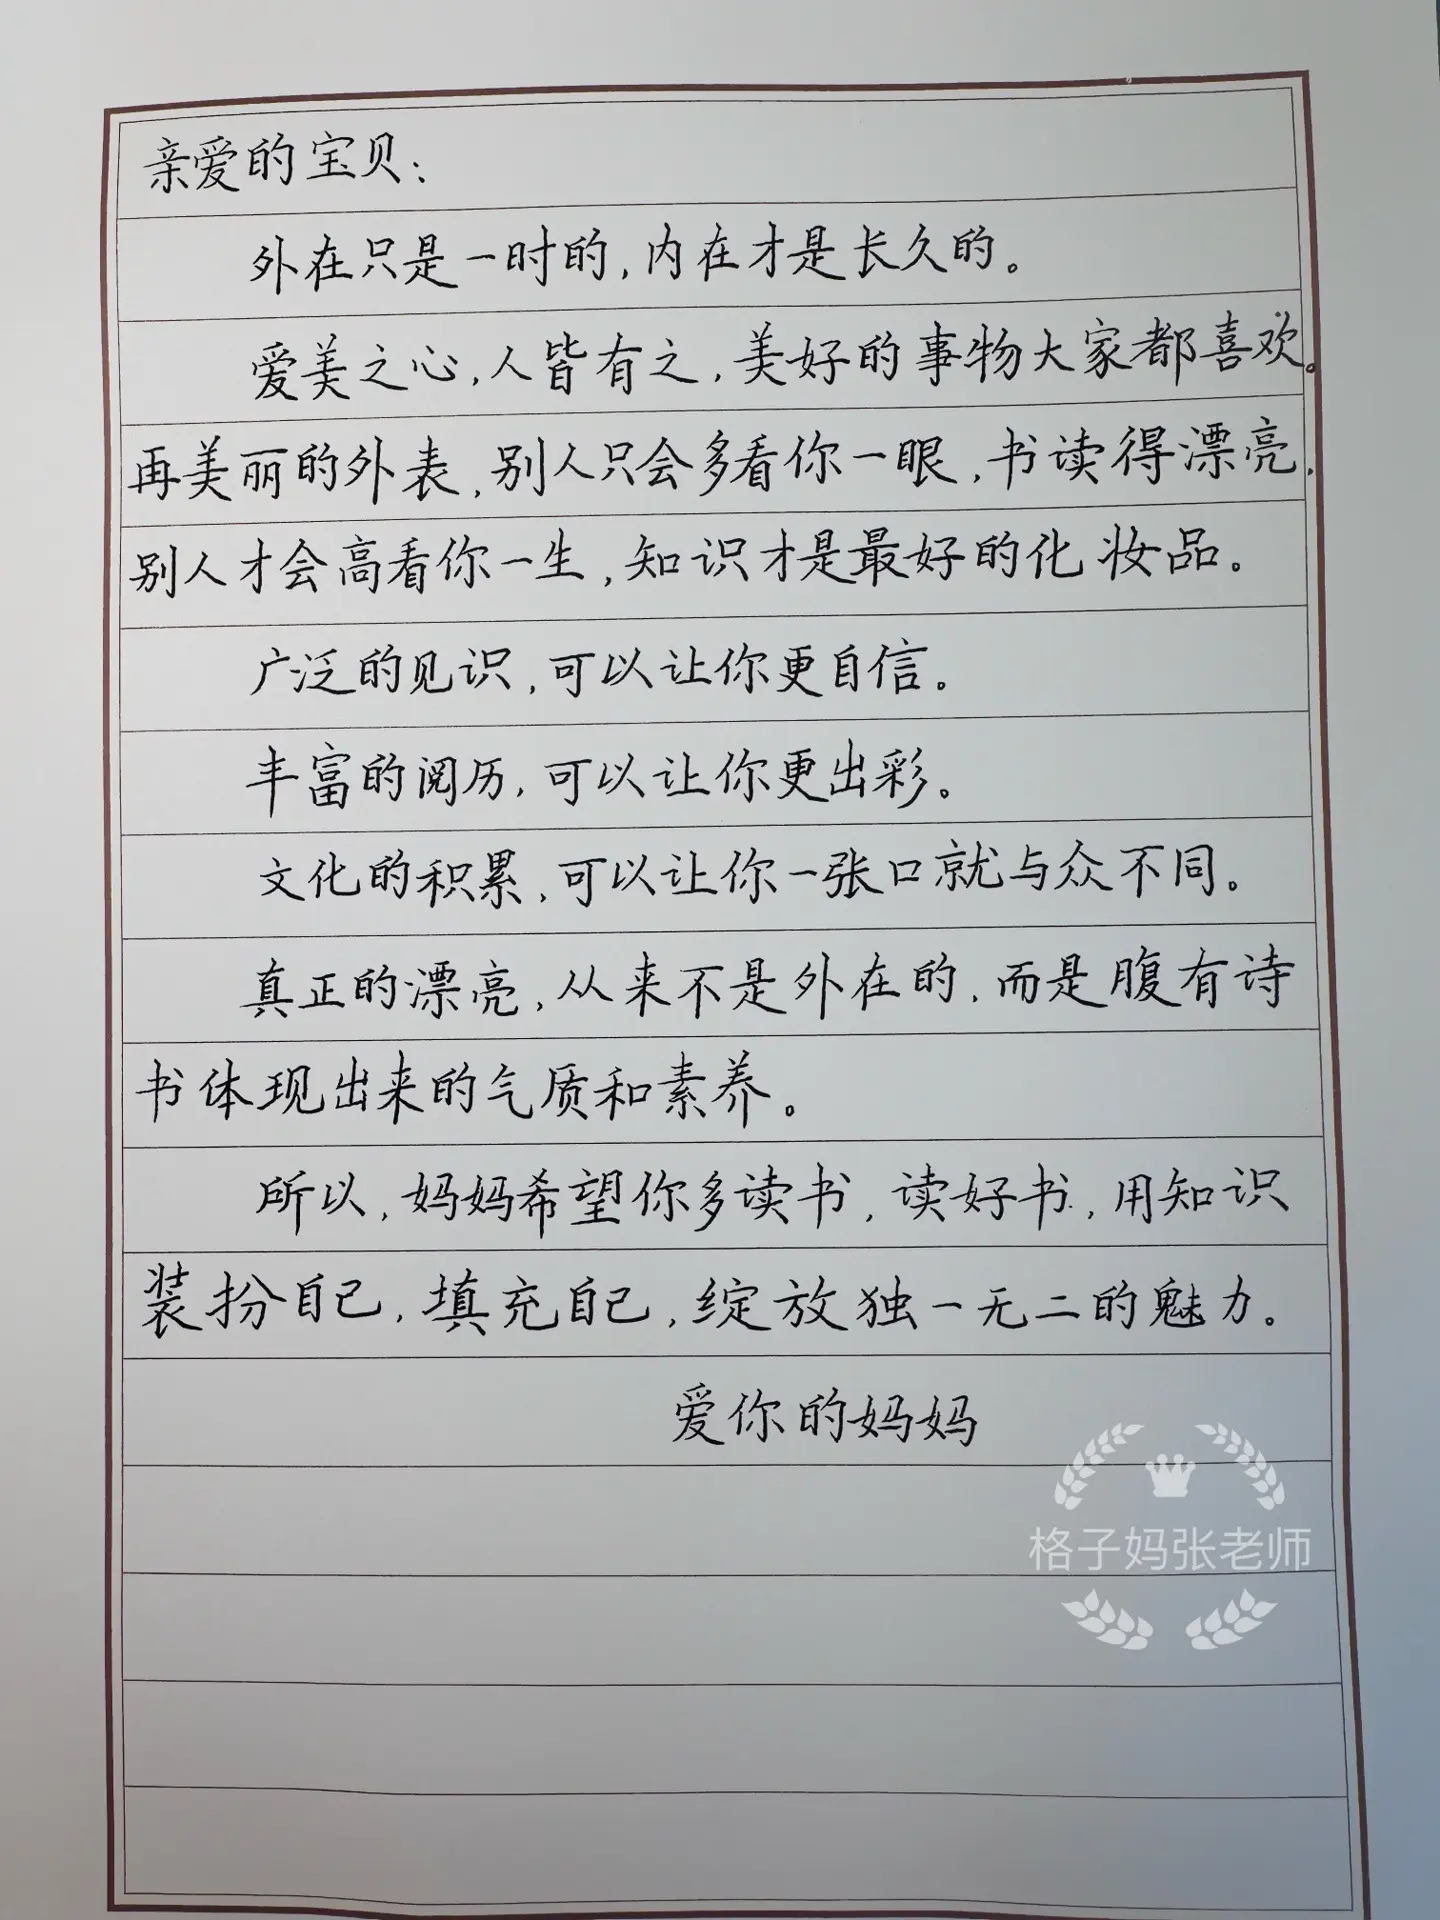 亲爱的宝贝：
外在只是一时的，内在才是长久的。
爱美之心，人皆有之，美好的事物大家都喜欢。
再美丽的外表，别人只会多看你一眼，书读得漂亮，
别人才会高看你一生，知识才是最好的化妆品。
广泛的见识，可以让你更自信。
丰富的阅历，可以让你更出彩。
文化的积累，可以让你一张口就与众不同。
真正的漂亮，从来不是外在的，而是腹有诗
书体现出来的气质和素养。
所以，妈妈希望你多读书，读好书，用知识
装扮自己，填充自己，绽放独一无二的魅力。
爱你的妈妈
格子妈张老师